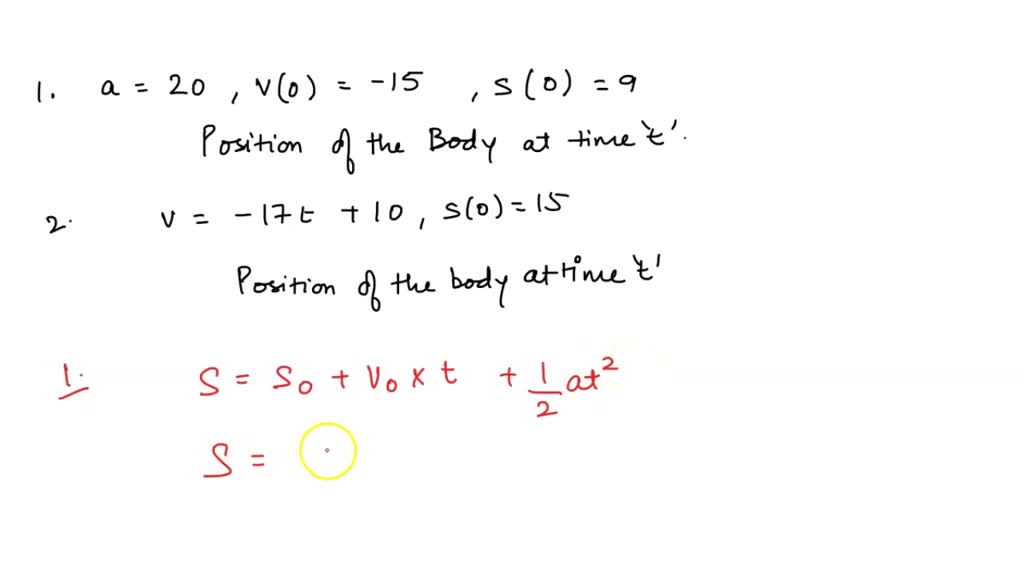 1. a = 20 , v(0) = -15 , s(0) = 9
Position of the Body at time 't'.
2. v = -17t + 10 , s(0) = 15
Position of the body at time 't'
1. S = S₀ + V₀ × t + 1/2 at²
S =